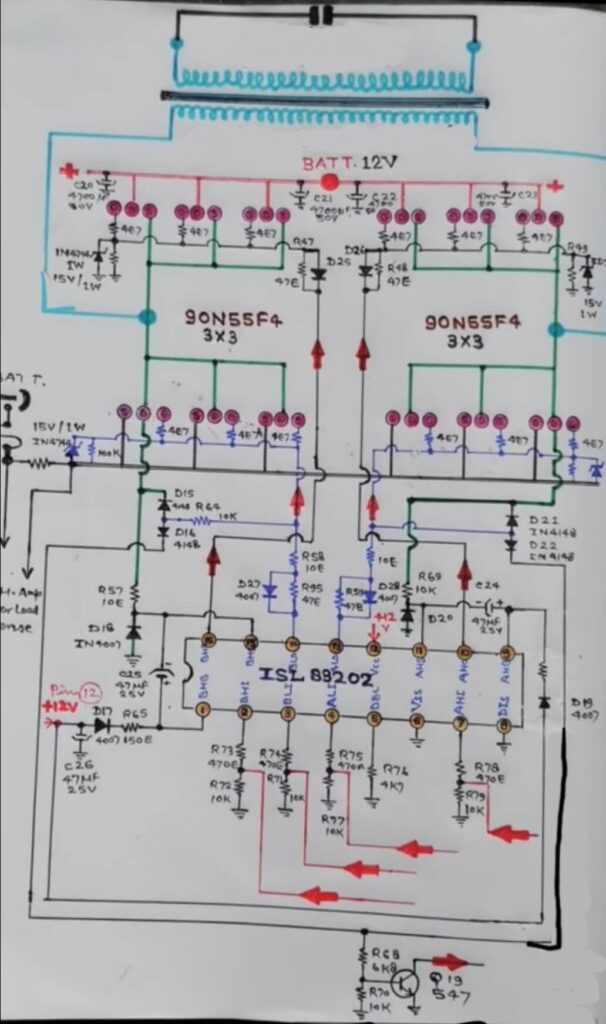 BATT. 12V
+
+
C20
4700μF
50V
C21
4700μF
50V
C22
4700
C23
4E7
4E7
4E7
R47
47E
D25
D26
R48
47E
4E7
4E7
4E7
R49
IN4746
1W
15V/1W
15V
1W
90N55F4
3X3
90N55F4
3X3
15V/1W
100K
4E7
4E7
4E7
4E7
4E7
4E7
D15
4148
R64
10K
D16
4148
D21
IN4148
D22
IN4148
R57
10E
R58
10E
10E
R69
10K
C24
47MF
25V
D27
4007
R95
47E
R59
47E
D28
4007
+12
V
D20
D18
IN4007
C25
47MF
25V
ISL 83202
BHB
BHI
BLI
ALI
DEL
VSS
AHI
DIS
VCC
1
2
3
4
5
6
7
8
9
10
11
12
Pin 12
+12V
D17
4007
R65
150E
C26
47MF
25V
D19
4007
R73
470E
R72
10K
R74
470E
R71
10K
R75
470E
R77
10K
R76
4K7
R78
470E
R79
10K
R68
6K8
R70
10K
Q19
547